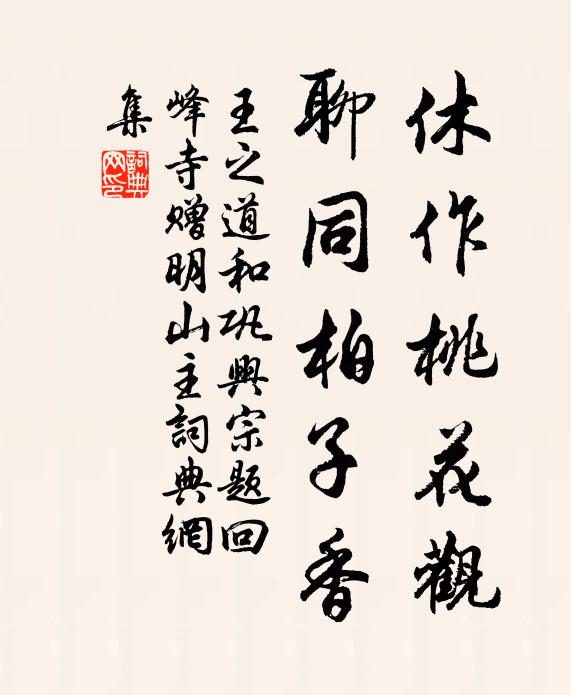 休作桃花觀
聊同柏子香
王之道和巩興宗題回
峰寺贈明山主詞典網
集
詞典
网印